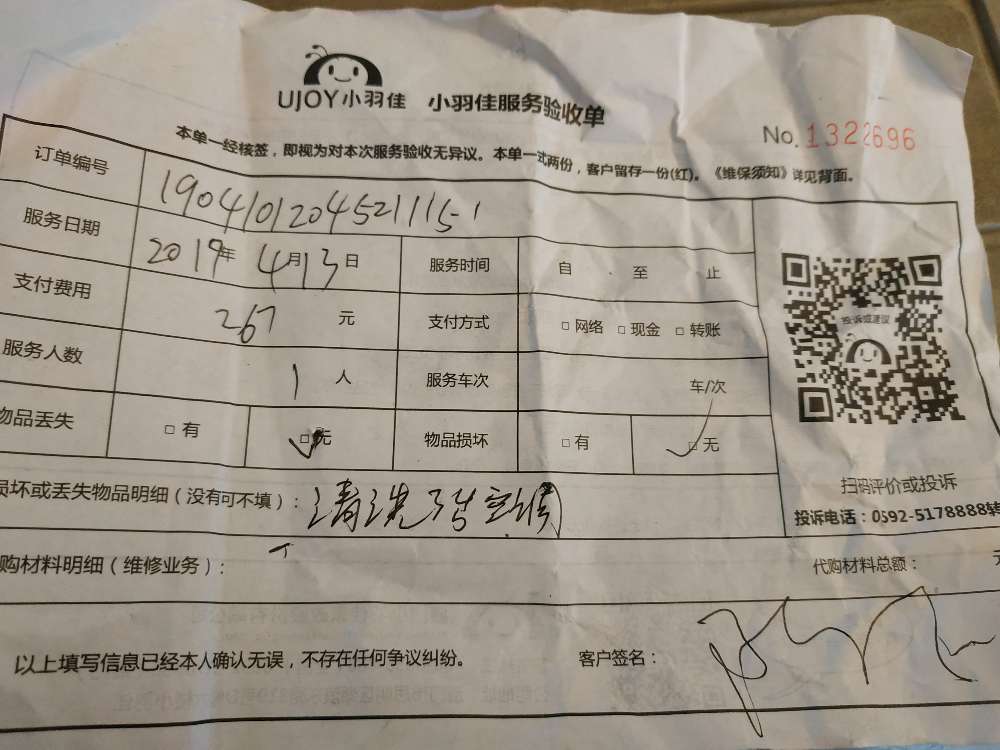 UJOY小羽佳 小羽佳服务验收单
No.1322696
本单一经核签，即视为对本次服务验收无异议。本单一式两份，客户留存一份(红)。《维保须知》详见背面。
订单编号 1904101204521115-1
服务日期 2019年 4月13日 服务时间 自 至 止
支付费用 267 元 支付方式 □网络 □现金 □转账
服务人数 1 人 服务车次 车/次
物品丢失 □有 □无 物品损坏 □有 □无
损坏或丢失物品明细（没有可不填）： 清洗 空调
购材料明细（维修业务）： 代购材料总额：
以上填写信息已经本人确认无误，不存在任何争议纠纷。 客户签名：
投诉或建议
扫码评价或投诉
投诉电话：0592-5178888转